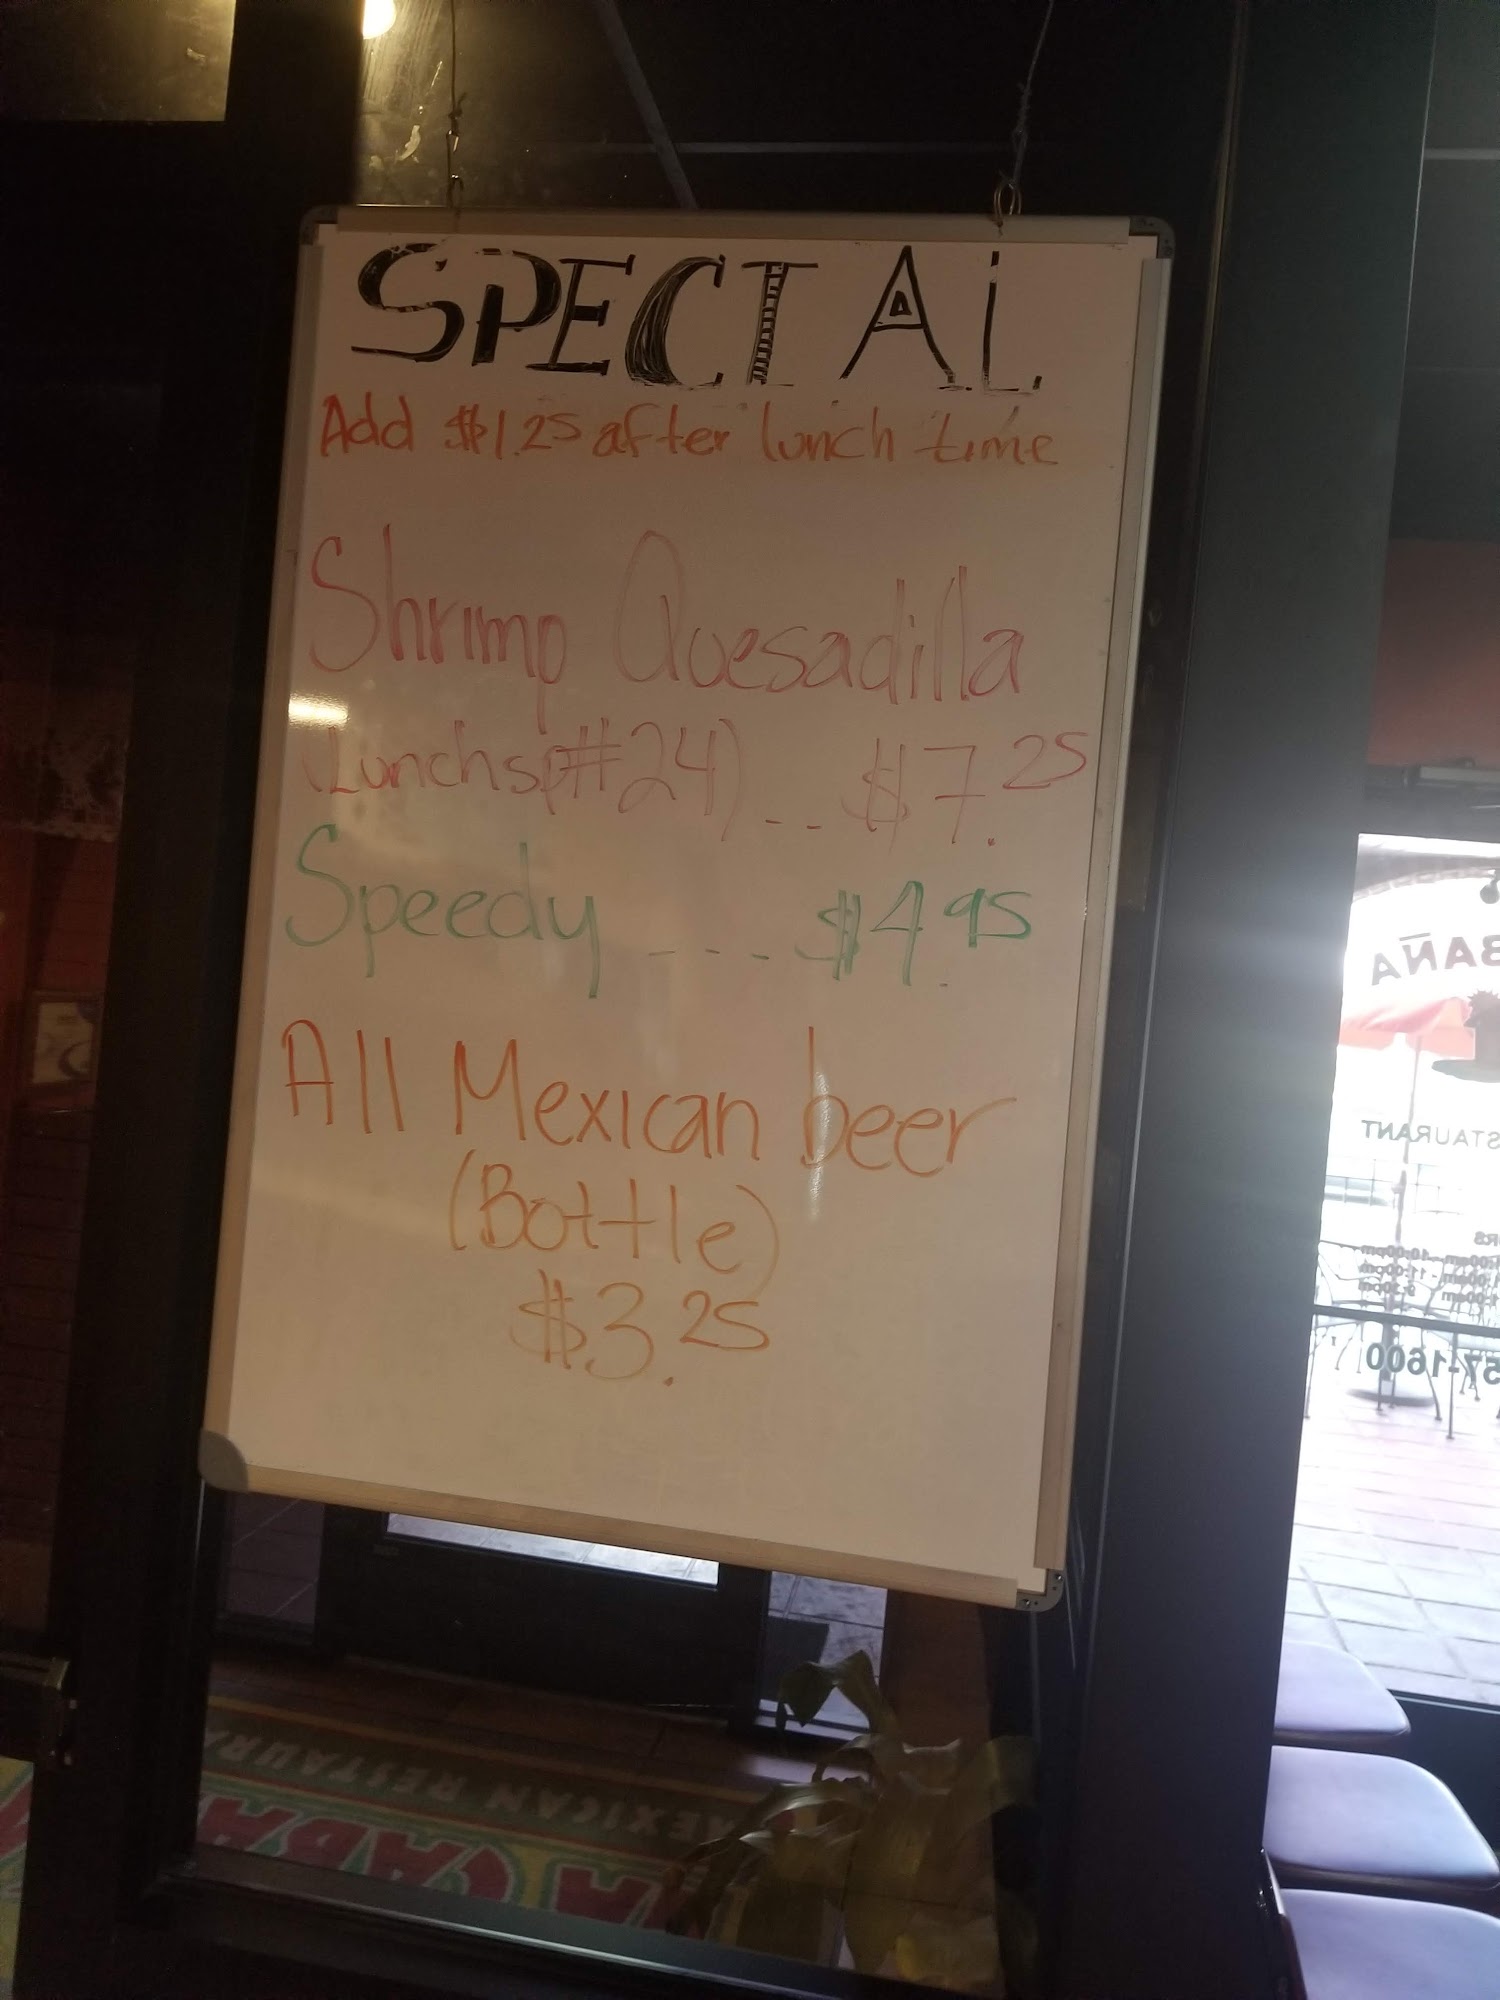 SPECIAL
Add $1.25 after lunch time
Shrimp Quesadilla
Lunchs(#24) .. $7.25
Speedy ---- $4.95
All Mexican beer
(Bottle)
$3.25
BAÑA
STAURANT
RS
10:00pm
11:00pm
9:30pm
57-1600
MEXICAN RESTAUR
LA CABA